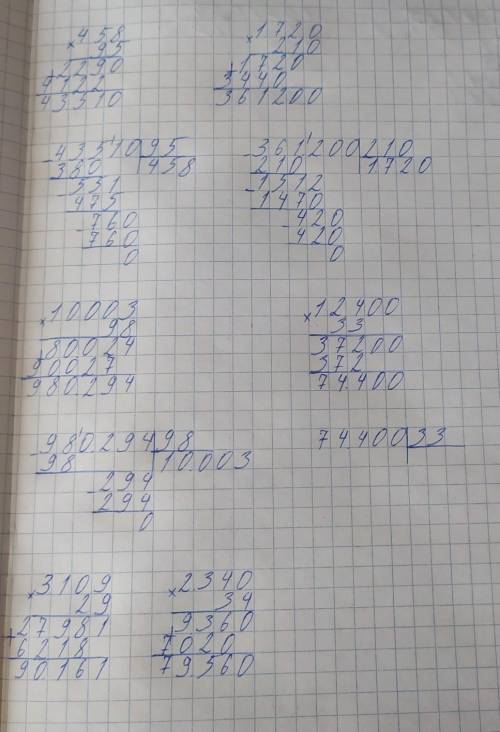 × 458
95
+ 2290
4122
43510
× 1720
210
+ 1720
3440
361200
- 43510 | 95
380 | 458
- 551
475
- 760
760
0
- 361200 | 210
210 | 1720
- 1512
1470
- 420
420
0
× 10003
98
+ 80024
90027
980294
× 12400
33
37200
372
74400
- 980294 | 98
98 | 10003
- 294
294
0
74400 | 33
× 3109
29
+ 27981
6218
90161
× 2340
34
+ 9360
7020
79560